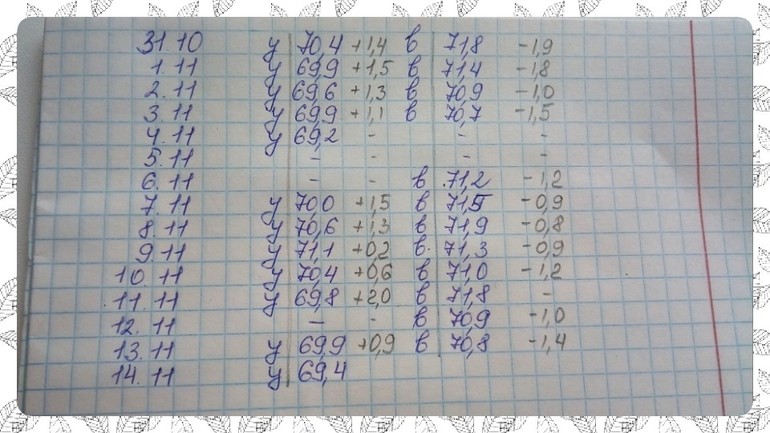 31.10 у 70,4 +1,4 в 71,8 -1,9
1.11 у 69,9 +1,5 в 71,4 -1,8
2.11 у 69,6 +1,3 в 70,9 -1,0
3.11 у 69,9 +1,1 в 70,7 -1,5
4.11 у 69,2 - - -
5.11 - - - -
6.11 - - в 71,2 -1,2
7.11 у 70,0 +1,5 в 71,5 -0,9
8.11 у 70,6 +1,3 в 71,9 -0,8
9.11 у 71,1 +0,2 в 71,3 -0,9
10.11 у 70,4 +0,6 в 71,0 -1,2
11.11 у 69,8 +2,0 в 71,8 -
12.11 - - в 70,9 -1,0
13.11 у 69,9 +0,9 в 70,8 -1,4
14.11 у 69,4